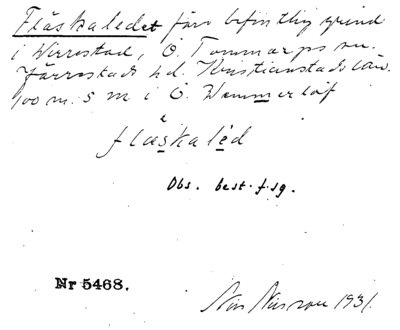 Fläskaledet förr befintlig grind
i Virrestad, Ö. Tommarps sn.
Järrestads hd. Kristianstads län.
400 m. S m. i Ö. Vemmerlöf
fläskaléd
Obs. best. f. sg.
Nr 5468.
1931.